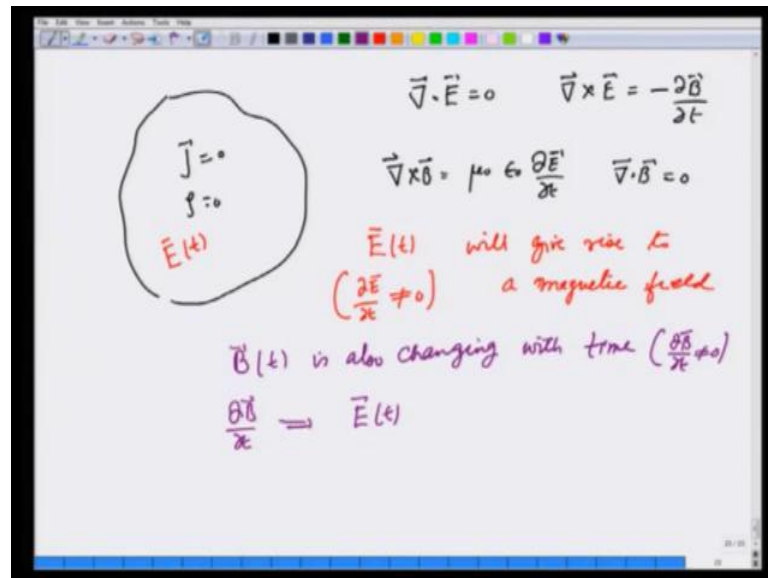 File Edit View Insert Actions Tools Help
∇⃗.E⃗ = 0    ∇⃗×E⃗ = -∂B⃗/∂t
J⃗ = 0
ρ = 0
∇⃗×B⃗ = μ₀ ϵ₀ ∂E⃗/∂t    ∇⃗.B⃗ = 0
E⃗(t)
E⃗(t) will give rise to
(∂E⃗/∂t ≠ 0) a magnetic field
B⃗(t) is also changing with time (∂B⃗/∂t ≠ 0)
∂B⃗/∂t ⇒ E⃗(t)